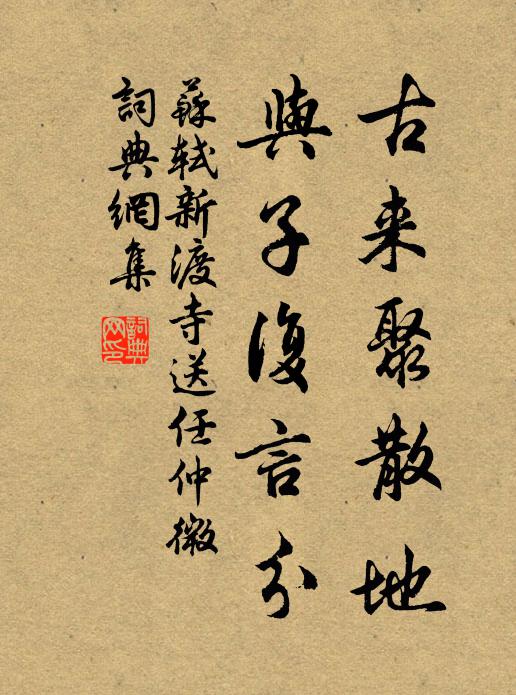 古来聚散地
與子復言分
蘇軾新渡寺送任仲微
詞典網集
詞典
网印